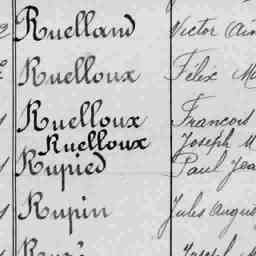 Ruelland Victor
Ruelloux Félix
Ruelloux Francois
Ruelloux Joseph M
Rupied Paul Jea
Rupin Jules Augus
Joseph